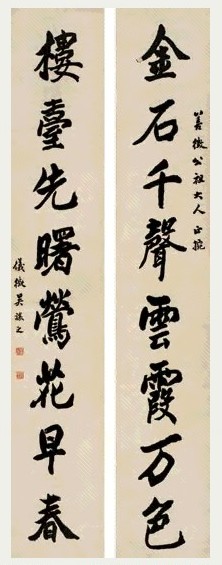 金石千聲雲霞万色
善徵公祖大人正腕
樓臺先曙鶯花早春
儀徵吳讓之